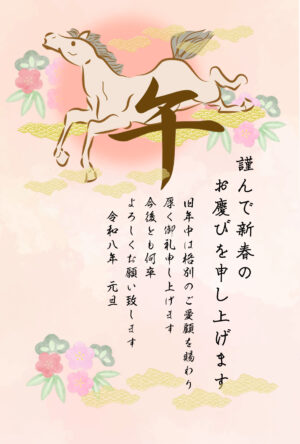 午
謹んで新春の
お慶びを申し上げます
旧年中は格別のご愛顧を賜わり
厚く御礼申し上げます
今後とも何卒
よろしくお願い致します
令和八年 元旦